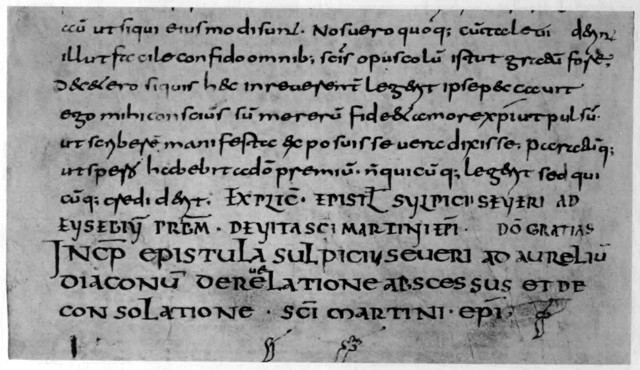 ut siqui eius modi sunt. Nos uero quoq;
illut facile confido omnib; scīs opusculū istut gratū fore.
De cetero siquis hec inreuerent legerit ipse peccauit
ego mihi conscius sū me rerū fide & amore xpi inpulsū
ut scriberē manifesta exposuisse uera dixisse. paratūq;
ut spero habebit a dō premiū. n̄ quicūq; legerit sed qui
cūq; crediderit. EXPLIC̄ · EPISTL̄ SULPICII SEUERI AD
EUSEBIUM PRBM̄ · DE UITA SC̄I MARTINI EPI · DŌ GRATIAS
INCP̄ EPISTULA SULPICII SEUERI AD AURELIŪ
DIACONŪ DE REUELATIONE ABSCESSUS ET DE
CONSOLATIONE · SC̄I MARTINI · EPI;